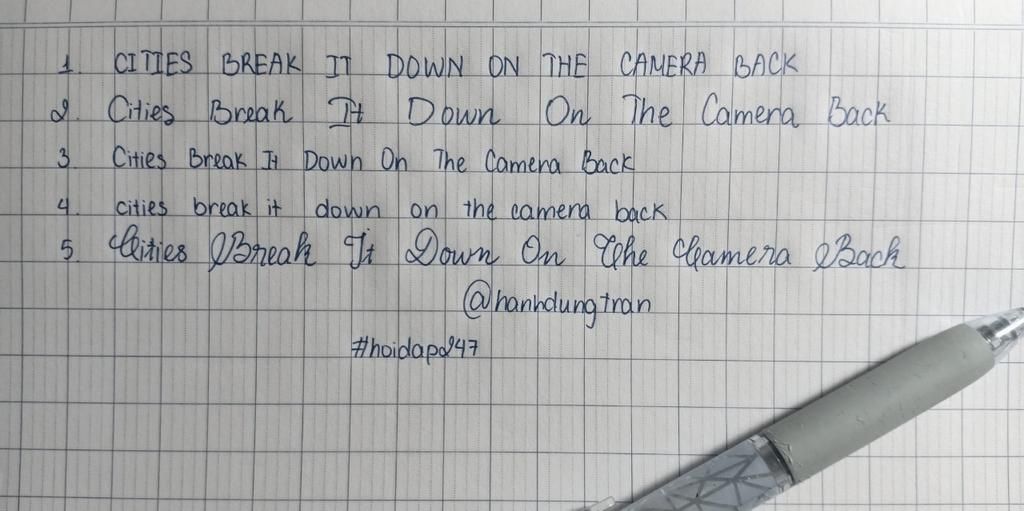 1. CITIES BREAK IT DOWN ON THE CAMERA BACK
2. Cities Break It Down On The Camera Back
3. Cities Break It Down On The Camera Back
4. cities break it down on the camera back
5 Cities Break It Down On The Camera Back
@hanhdungtran
#hoidap247